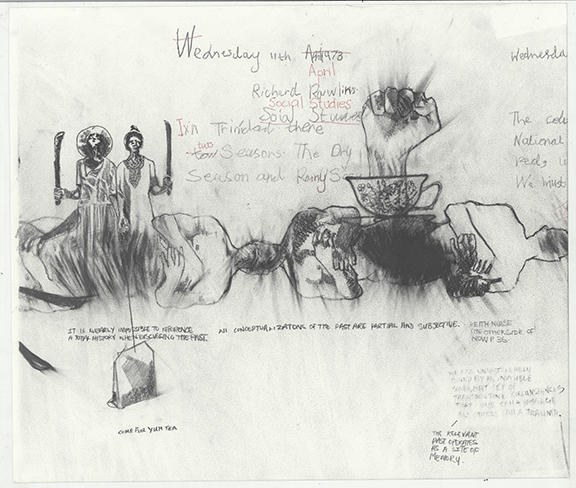 Wednesday 11th April 1973
April
Richard Rawlins
Social Studies
Social Studies
In Trinidad there
two Seasons. The Dry
Season and Rainy S
Wednesda
The col
National
Red,
We must
IT IS CLEARLY IMPOSSIBLE TO REFERENCE
A TOTAL HISTORY WHEN DISCUSSING THE PAST.
ALL CONCEPTUALIZATIONS OF THE PAST ARE PARTIAL AND SUBJECTIVE.
KEITH NURSE
THE OTHER SIDE OF
NOW P. 36
BY AN INVISIBLE
SET OF
CIRCUMSTANCES
THAT
AND OTHERS CALL TRAUMA.
THE RELEVANT
PAST OPERATES
AS A SITE OF
MEMORY.
COME FUR YUH TEA